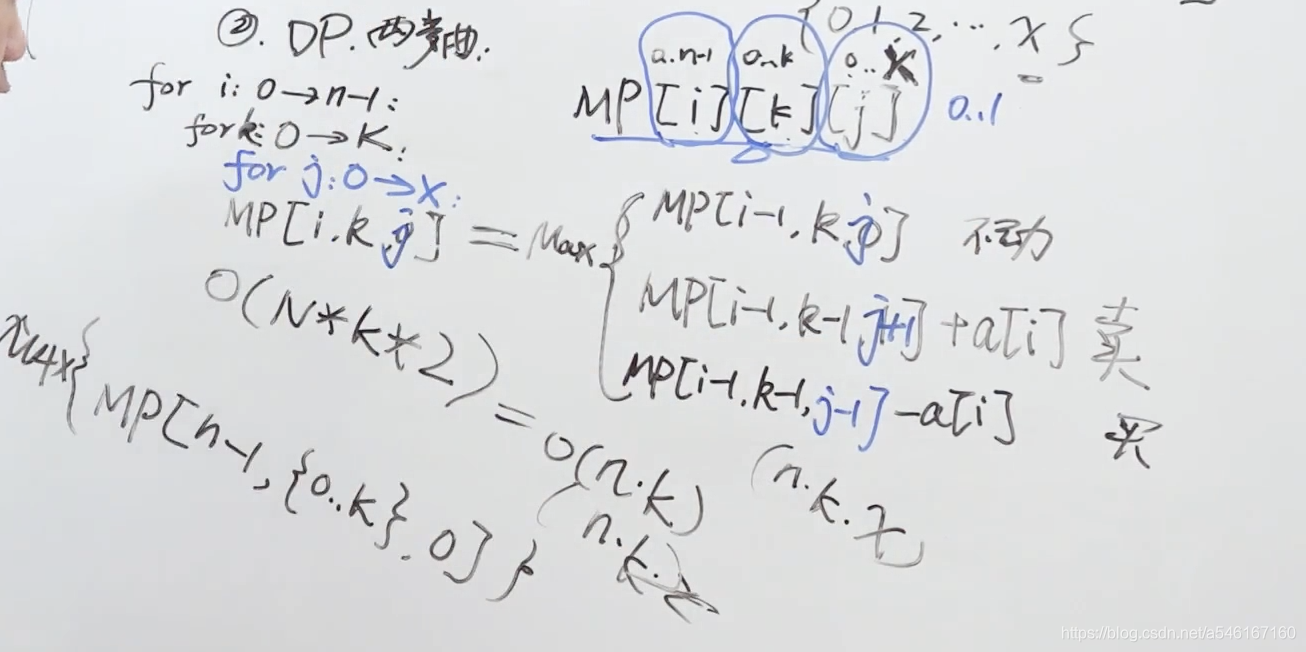 ②. DP. 两部曲.
{0,1,2,…,X}
a.n-1 0..k 0..X
for i: 0→n-1:
MP[i][k][j] 0..1
for k: 0→K:
for j: 0→X:
MP[i,k,j] = Max{ MP[i-1,k,j] 不动
MP[i-1,k-1,j+1] +a[i] 卖
MP[i-1,k-1,j-1] -a[i] 买
O(N*k*2) = O(n.k)
Max{ MP[n-1,{0..k},0] }
(n.k.
n.k.
https://blog.csdn.net/a546167160